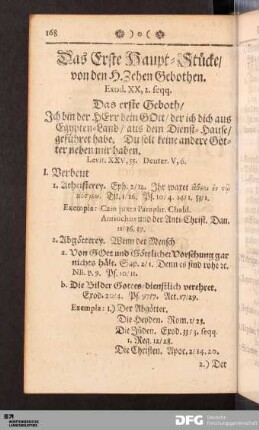 168 )o(
Das Erste Haupt-Stücke/
von den H. Zehen Gebothen.
Exod. XX, 2. seqq.
Das erste Geboth/
Ich bin der HErr dein GOtt/ der ich dich aus
Egypten-Land/ aus dem Dienst-Hause/
geführet habe. Du solt keine andere Göt-
ter neben mir haben.
Levit. XXV, 55. Deuter. V, 6.
I. Verbeut
1. Atheisterey. Eph. 2/12. Ihr waret
Pf. 10/4. 14/1. 53/1.
Exempla: Cain juxta Paraphr. Chald.
Antiochus und der Anti-Christ. Dan.
11/36. 37.
2. Abgötterey. Wenn der Mensch
a. Von GOtt und Göttlicher Vorsehung gar
nichts hält. Sap. 2/1. Denn es sind rohe 2c.
NB. v. 9. Ps. 10/11.
b. Die Bilder Gottes/ dienstlich verehret.
Exod. 20/4. Ps. 97/7. Act. 17/29.
Exempla: 1.) Der Abgötter.
Die Heyden. Rom. 1/23.
Die Jüden. Exod. 33/3. seqq.
1. Reg. 12/28.
Die Christen. Apoc. 2/14. 20.
2.) Der
DFG Deutsche
Forschungsgemeinschaft